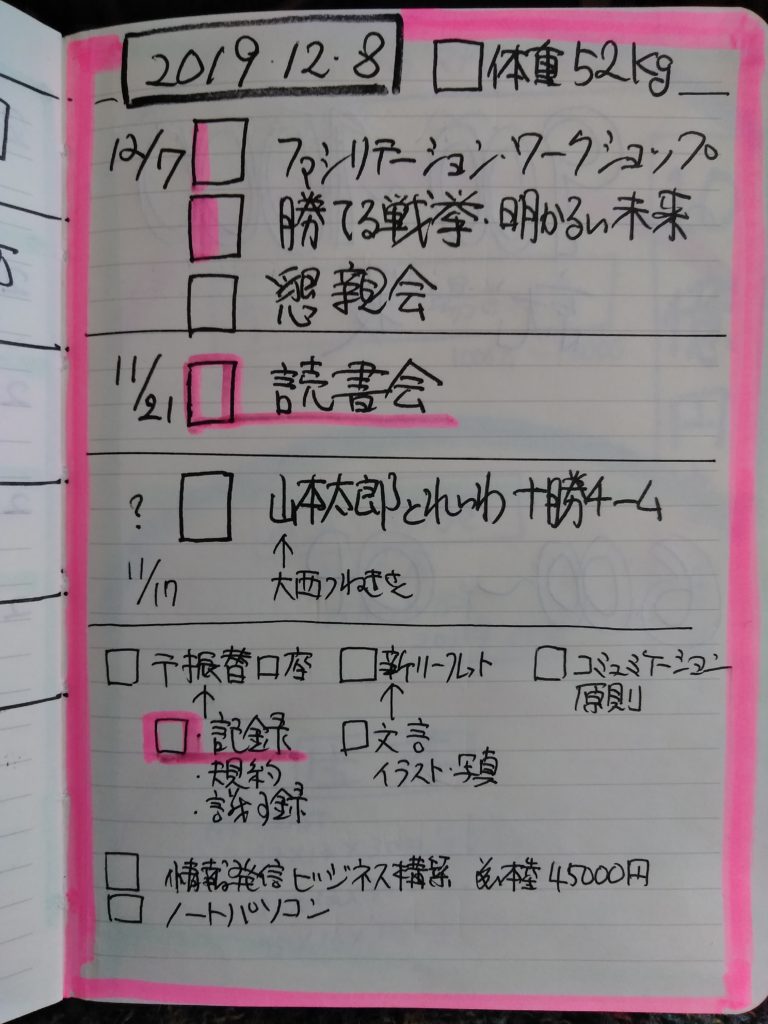 2019.12.8 □体重52kg
12/7 □ ファシリテーション・ワークショップ
□ 勝てる戦挙・明かるい未来
□ 懇親会
11/21 □ 読書会
? □ 山本太郎とれいわ十勝チーム
↑
11/17 大西つねきさん
□〒振替口座 □新リーフレット □コミュニケーション
原則
↑ ↑
□・記録 □文言
・規約 イラスト・写真
・議事録
□ 情報発信ビジネス構築 45000円
□ ノートパソコン